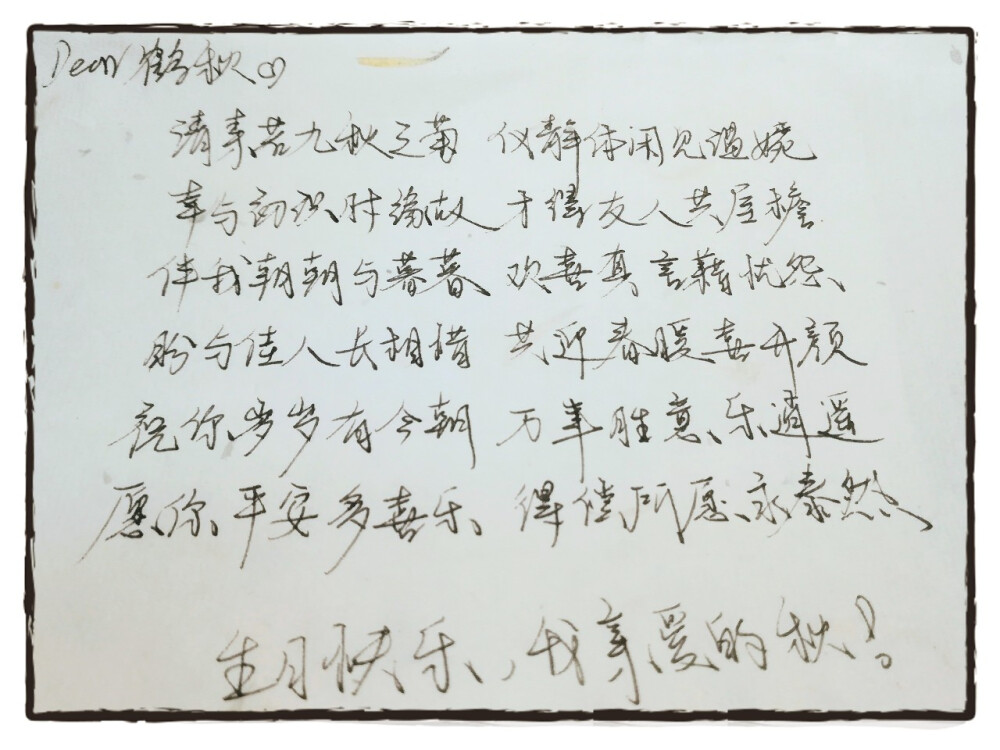 Dear 鹤秋
清素若九秋之菊 仪静体闲见温婉
幸与初识时缘故 才得友人共屋檐
伴我朝朝与暮暮 欢喜真言藉忧怨
盼与佳人长相惜 共迎春暖喜开颜
祝你岁岁有今朝 万事胜意乐逍遥
愿你平安多喜乐 得偿所愿永泰然
生日快乐,我亲爱的秋!